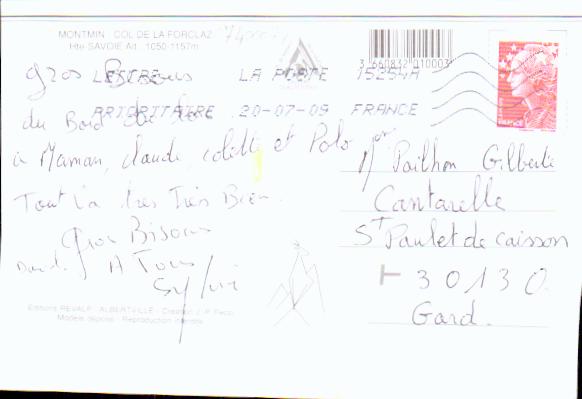 MONTMIN - COL DE LA FORCLAZ
Hte SAVOIE Alt. 1050-1157m
3 660832 010003
LETTRE LA POSTE 15254A
PRIORITAIRE 20-07-09 FRANCE
gros Bisous
du Bord du lac
à Maman, claude, colette et Polo
Tout va très Très Bien.
gros Bisous
A Tous
David. Sylvie
Mme Pailhon Gilberte
Cantarelle
St Paulet de caisson
30130
Gard.
Editions REVALP - ALBERTVILLE - Création J. P. Pecci
Modèle déposé - Reproduction interdite